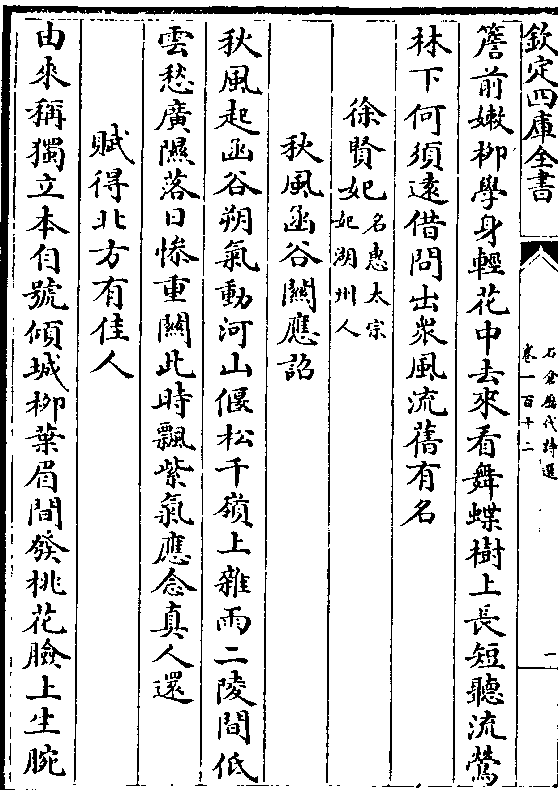 欽定四庫全書
石倉歷代詩選
卷一百十二
一
簷前嫩栁學身輕花中去來看舞蝶樹上長短聽流鶯
林下何須逺借問出衆風流舊有名
徐賢妃名惠太宗妃湖州人
秋風函谷闗應詔
秋風起函谷朔氣動河山偃松千嶺上雜雨二陵間低
雲愁廣隰落日慘重闗此時飄紫氣應念真人還
賦得北方有佳人
由來稱獨立本自號傾城栁葉眉間發桃花臉上生腕